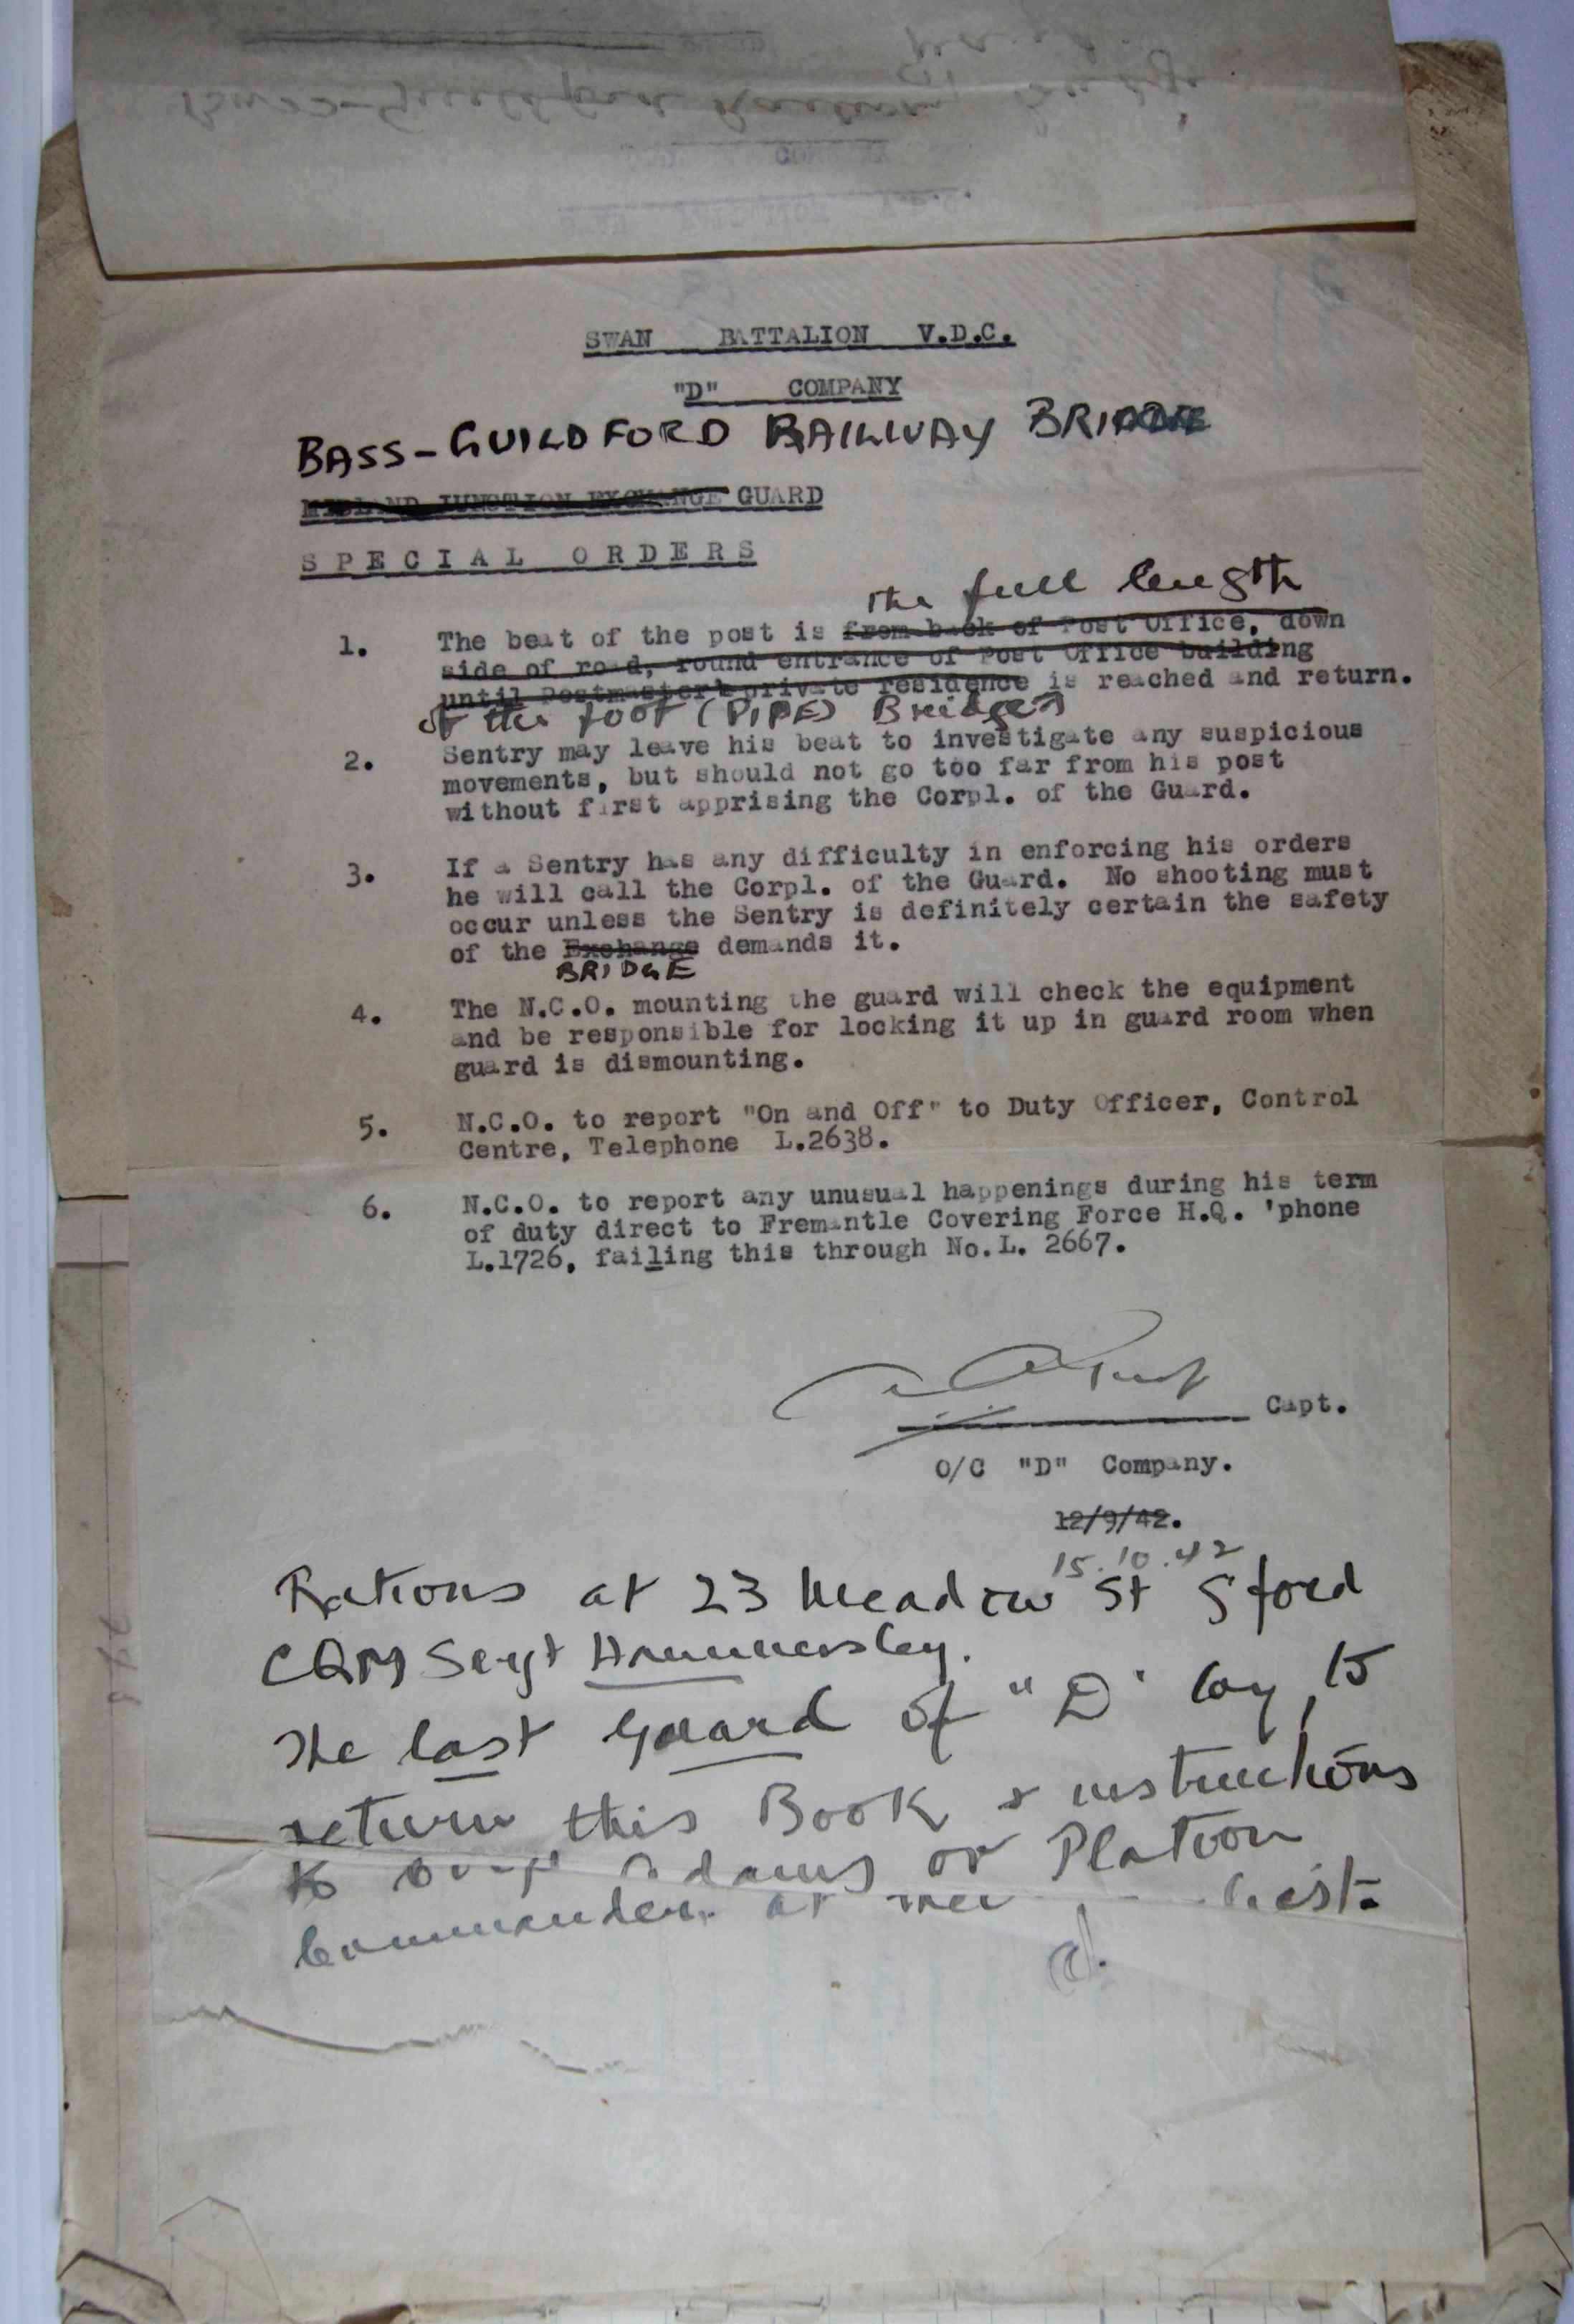 SWAN BATTALION V.D.C.
"D" COMPANY
BASS-GUILDFORD RAILWAY BRIDGE
MIDLAND JUNCTION EXCHANGE GUARD
SPECIAL ORDERS
the full length
1. The beat of the post is from back of Post Office, down
side of road, round entrance of Post Office building
until Postmaster's private residence is reached and return.
of the foot (PIPE) Bridge
2. Sentry may leave his beat to investigate any suspicious
movements, but should not go too far from his post
without first apprising the Corpl. of the Guard.
3. If a Sentry has any difficulty in enforcing his orders
he will call the Corpl. of the Guard. No shooting must
occur unless the Sentry is definitely certain the safety
of the Exchange demands it.
BRIDGE
4. The N.C.O. mounting the guard will check the equipment
and be responsible for locking it up in guard room when
guard is dismounting.
5. N.C.O. to report "On and Off" to Duty Officer, Control
Centre, Telephone L.2638.
6. N.C.O. to report any unusual happenings during his term
of duty direct to Fremantle Covering Force H.Q. 'phone
L.1726, failing this through No.L. 2667.
Capt.
O/C "D" Company.
12/9/42.
15.10.42
Rations at 23 Meadow St Gford
CQM Sergt
The last Guard of "D" Coy, to
return this Book & instructions
to Adams or Platoon
Commander at